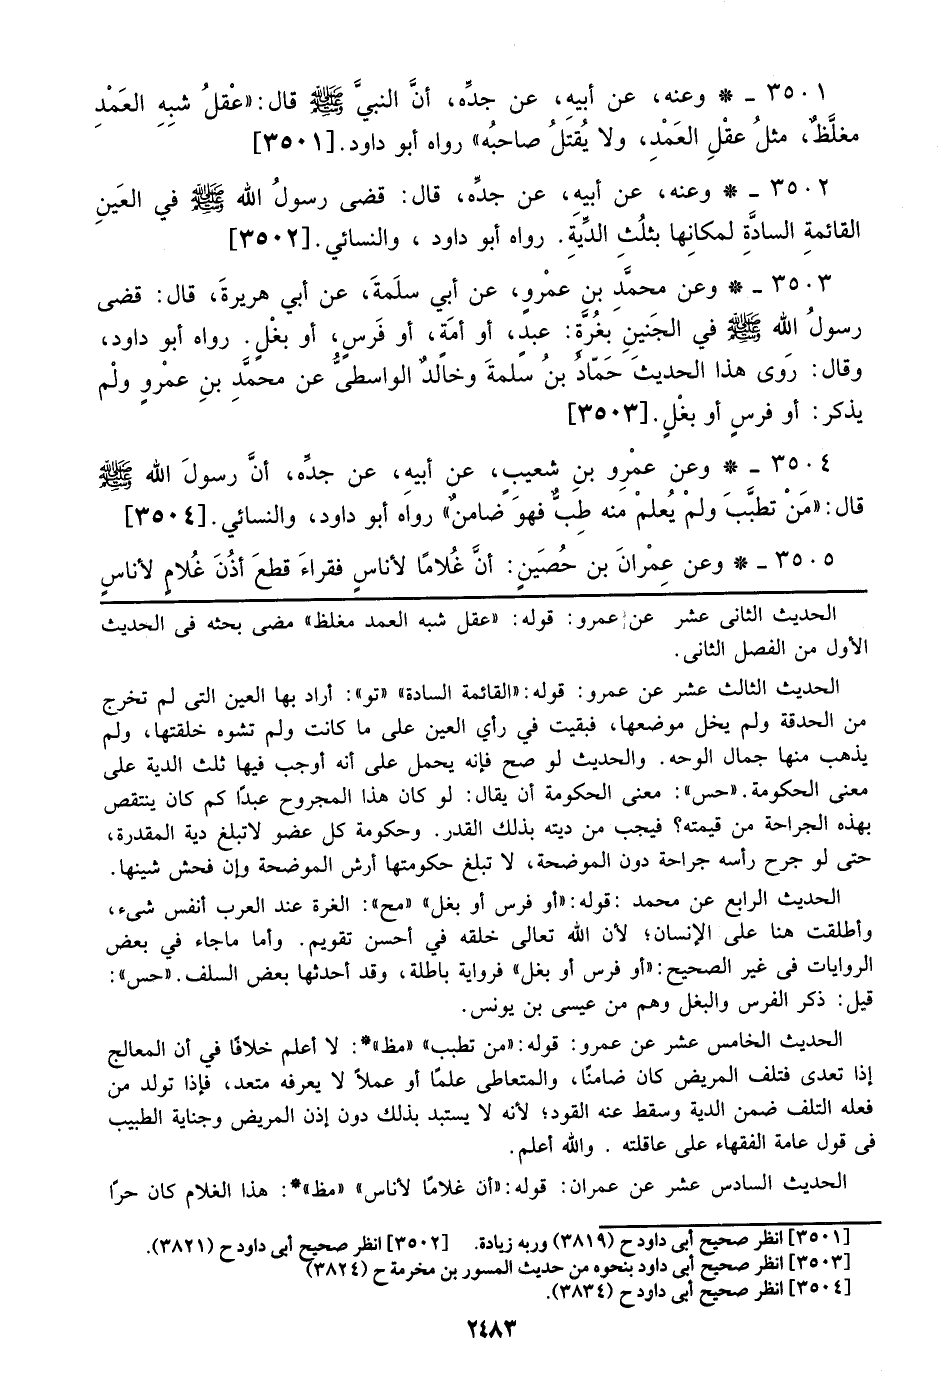 ٣٥٠١ ـ * وعنه، عن أبيهِ، عن جدِّه، أنَّ النبيَّ ﷺ قال: «عْقلُ شبهِ العَمْدِ
مغلَّظٌ، مثلُ عقْلِ العَمْدِ، ولا يُقتلُ صاحبُه» رواه أبو داود. [٣٥٠١]
٣٥٠٢ ـ * وعنه، عن أبيه، عن جدِّه، قال: قضى رسولُ الله ﷺ في العَينِ
القائمةِ السادَّةِ لمكانِها بثلُثِ الدِّيَةِ. رواه أبو داود ، والنسائي. [٣٥٠٢]
٣٥٠٣ ـ * وعن محمَّدِ بنِ عمْروٍ، عن أبي سلَمةَ، عن أبي هريرةَ، قال: قضى
رسولُ الله ﷺ في الجَنينِ بغُرَّةٍ: عبدٍ، أو أمَةٍ، أو فَرسٍ، أو بغْلٍ. رواه أبو داود،
وقال: رَوى هذا الحديثَ حَمّادُ بنُ سلمةَ وخالدٌ الواسطيُّ عن محمَّدِ بنِ عمْروٍ ولم
يذكر: أو فرسٍ أو بغْلٍ. [٣٥٠٣]
٣٥٠٤ ـ * وعن عمْرِو بنِ شعيبٍ، عن أبيهِ، عن جدِّه، أنَّ رسولَ الله ﷺ
قال: «مَنْ تطبَّبَ ولمْ يُعلمْ منه طِبٌّ فهوَ ضامنٌ» رواه أبو داود، والنسائي. [٣٥٠٤]
٣٥٠٥ ـ * وعن عِمْرانَ بن حُصَينٍ: أنَّ غُلامًا لأناسٍ فقراءَ قطعَ أذُنَ غُلامٍ لأناسٍ
الحديث الثانى عشر عن عمرو: قوله: «عقل شبه العمد مغلظ» مضى بحثه فى الحديث
الأول من الفصل الثانى.
الحديث الثالث عشر عن عمرو: قوله: «القائمة السادة» «تو»: أراد بها العين التى لم تخرج
من الحدقة ولم يخل موضعها، فبقيت في رأي العين على ما كانت ولم تشوه خلقتها، ولم
يذهب منها جمال الوجه. والحديث لو صح فإنه يحمل على أنه أوجب فيها ثلث الدية على
معنى الحكومة. «حس»: معنى الحكومة أن يقال: لو كان هذا المجروح عبدًا كم كان ينتقص
بهذه الجراحة من قيمته؟ فيجب من ديته بذلك القدر. وحكومة كل عضو لاتبلغ دية المقدرة،
حتى لو جرح رأسه جراحة دون الموضحة، لا تبلغ حكومتها أرش الموضحة وإن فحش شينها.
الحديث الرابع عن محمد :قوله: «أو فرس أو بغل» «مح»: الغرة عند العرب أنفس شىء،
وأطلقت هنا على الإنسان؛ لأن الله تعالى خلقه في أحسن تقويم. وأما ماجاء في بعض
الروايات فى غير الصحيح: «أو فرس أو بغل» فرواية باطلة، وقد أحدثها بعض السلف. «حس»:
قيل: ذكر الفرس والبغل وهم من عيسى بن يونس.
الحديث الخامس عشر عن عمرو: قوله: «من تطبب» «مظ»*: لا أعلم خلافًا في أن المعالج
إذا تعدى فتلف المريض كان ضامنًا، والمتعاطى علمًا أو عملاً لا يعرفه متعد، فإذا تولد من
فعله التلف ضمن الدية وسقط عنه القود؛ لأنه لا يستبد بذلك دون إذن المريض وجناية الطبيب
فى قول عامة الفقهاء على عاقلته . والله أعلم.
الحديث السادس عشر عن عمران: قوله: «أن غلامًا لأناس» «مظ»*: هذا الغلام كان حرًا
[٣٥٠١] انظر صحيح أبى داود ح (٣٨١٩) وربه زيادة. [٣٥٠٢] انظر صحيح أبى داود ح (٣٨٢١).
[٣٥٠٣] انظر صحيح أبى داود بنحوه من حديث المسور بن مخرمة ح (٣٨٢٤)
[٣٥٠٤] انظر صحيح أبى داود ح (٣٨٣٤).
٢٤٨٣